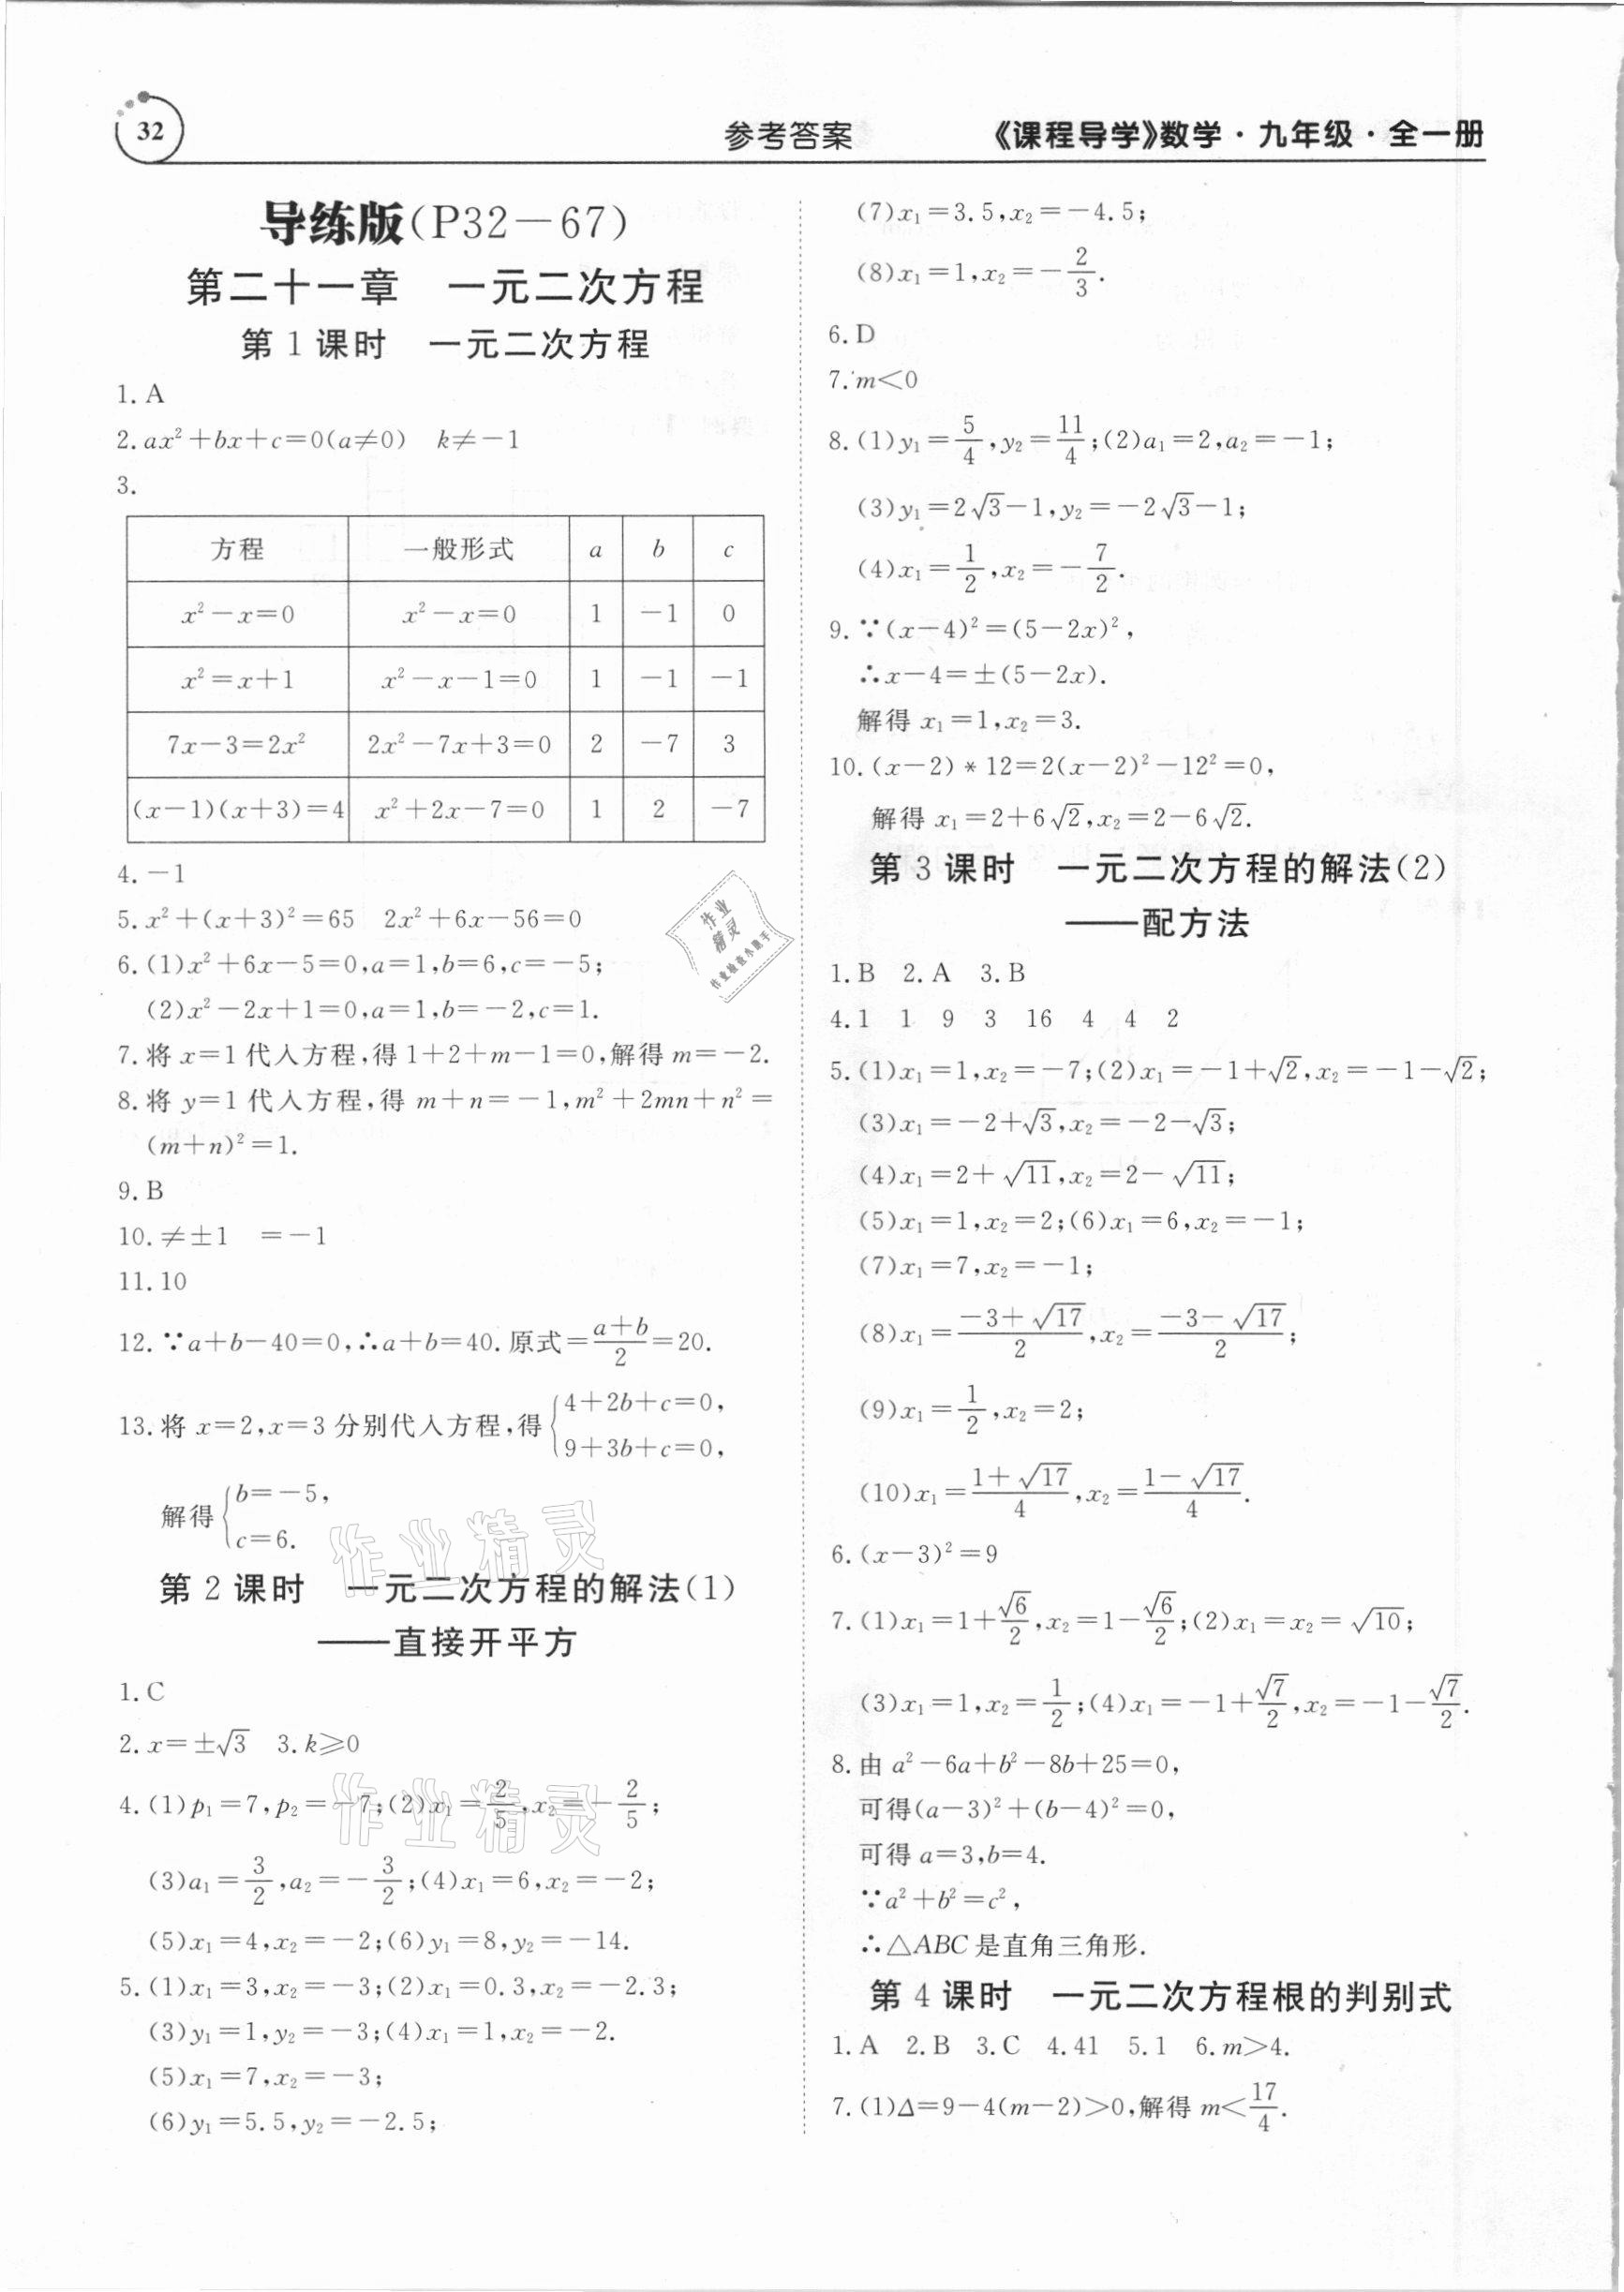 32
参考答案 《课程导学》数学·九年级·全一册
导练版(P32—67)
第二十一章 一元二次方程
第1课时 一元二次方程
1. A
2. ax²+bx+c=0(a≠0) k≠-1
3.
方程 一般形式 a b c
x²-x=0 x²-x=0 1 -1 0
x²=x+1 x²-x-1=0 1 -1 -1
7x-3=2x² 2x²-7x+3=0 2 -7 3
(x-1)(x+3)=4 x²+2x-7=0 1 2 -7
4. -1
5. x²+(x+3)²=65 2x²+6x-56=0
6. (1)x²+6x-5=0,a=1,b=6,c=-5;
(2)x²-2x+1=0,a=1,b=-2,c=1.
7. 将 x=1 代入方程,得 1+2+m-1=0,解得 m=-2.
8. 将 y=1 代入方程,得 m+n=-1,m²+2mn+n²=
(m+n)²=1.
9. B
10. ≠±1 =-1
11. 10
12. ∵a+b-40=0,∴a+b=40. 原式=(a+b)/2=20.
13. 将 x=2,x=3 分别代入方程,得{4+2b+c=0,
9+3b+c=0,
解得{b=-5,
c=6.
第2课时 一元二次方程的解法(1)
——直接开平方
1. C
2. x=±√3 3. k≥0
4. (1)p₁=7,p₂=-7;(2)x₁=2/5,x₂=-2/5;
(3)a₁=3/2,a₂=-3/2;(4)x₁=6,x₂=-2;
(5)x₁=4,x₂=-2;(6)y₁=8,y₂=-14.
5. (1)x₁=3,x₂=-3;(2)x₁=0.3,x₂=-2.3;
(3)y₁=1,y₂=-3;(4)x₁=1,x₂=-2.
(5)x₁=7,x₂=-3;
(6)y₁=5.5,y₂=-2.5;
(7)x₁=3.5,x₂=-4.5;
(8)x₁=1,x₂=-2/3.
6. D
7. m<0
8. (1)y₁=5/4,y₂=11/4;(2)a₁=2,a₂=-1;
(3)y₁=2√3-1,y₂=-2√3-1;
(4)x₁=1/2,x₂=-7/2.
9. ∵(x-4)²=(5-2x)²,
∴x-4=±(5-2x).
解得 x₁=1,x₂=3.
10. (x-2)*12=2(x-2)²-12²=0,
解得 x₁=2+6√2,x₂=2-6√2.
第3课时 一元二次方程的解法(2)
——配方法
1. B 2. A 3. B
4. 1 1 9 3 16 4 4 2
5. (1)x₁=1,x₂=-7;(2)x₁=-1+√2,x₂=-1-√2;
(3)x₁=-2+√3,x₂=-2-√3;
(4)x₁=2+√11,x₂=2-√11;
(5)x₁=1,x₂=2;(6)x₁=6,x₂=-1;
(7)x₁=7,x₂=-1;
(8)x₁=(-3+√17)/2,x₂=(-3-√17)/2;
(9)x₁=1/2,x₂=2;
(10)x₁=(1+√17)/4,x₂=(1-√17)/4.
6. (x-3)²=9
7. (1)x₁=1+√6/2,x₂=1-√6/2;(2)x₁=x₂=√10;
(3)x₁=1,x₂=1/2;(4)x₁=-1+√7/2,x₂=-1-√7/2.
8. 由 a²-6a+b²-8b+25=0,
可得(a-3)²+(b-4)²=0,
可得 a=3,b=4.
∵a²+b²=c²,
∴△ABC 是直角三角形.
第4课时 一元二次方程根的判别式
1. A 2. B 3. C 4. 41 5. 1 6. m>4.
7. (1)Δ=9-4(m-2)>0,解得 m<17/4.
作业精灵
作业精灵
作业
精灵